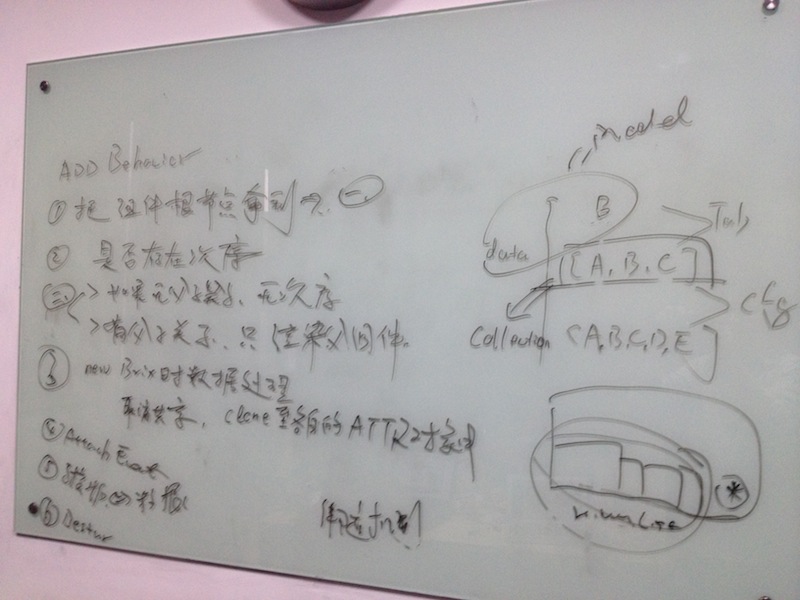 ADD Behavior
① 把组件根节点拿到 → 一
② 是否存在次序
三 > 如果无父子关系, 无次序
> 有父子关系, 只渲染父组件.
③ new Brix时数据处理
取消共享, clone至各自的ATTR对象中
④ Attach Event
⑤ 数据
⑥ Destur
model
B
data
[A, B, C]
Tab
Collection [A,B,C,D,E]
cfg
*